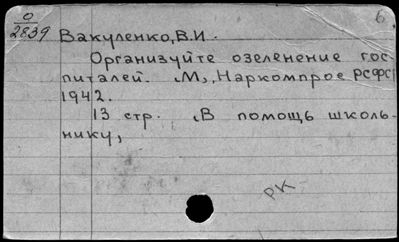 О
2839
б.
Вакуленко, В.И.
Организуйте озеленение гос-
питалей. М., Наркомпрос РСФСР
1942.
13 стр. (В помощь школь-
нику,
РК